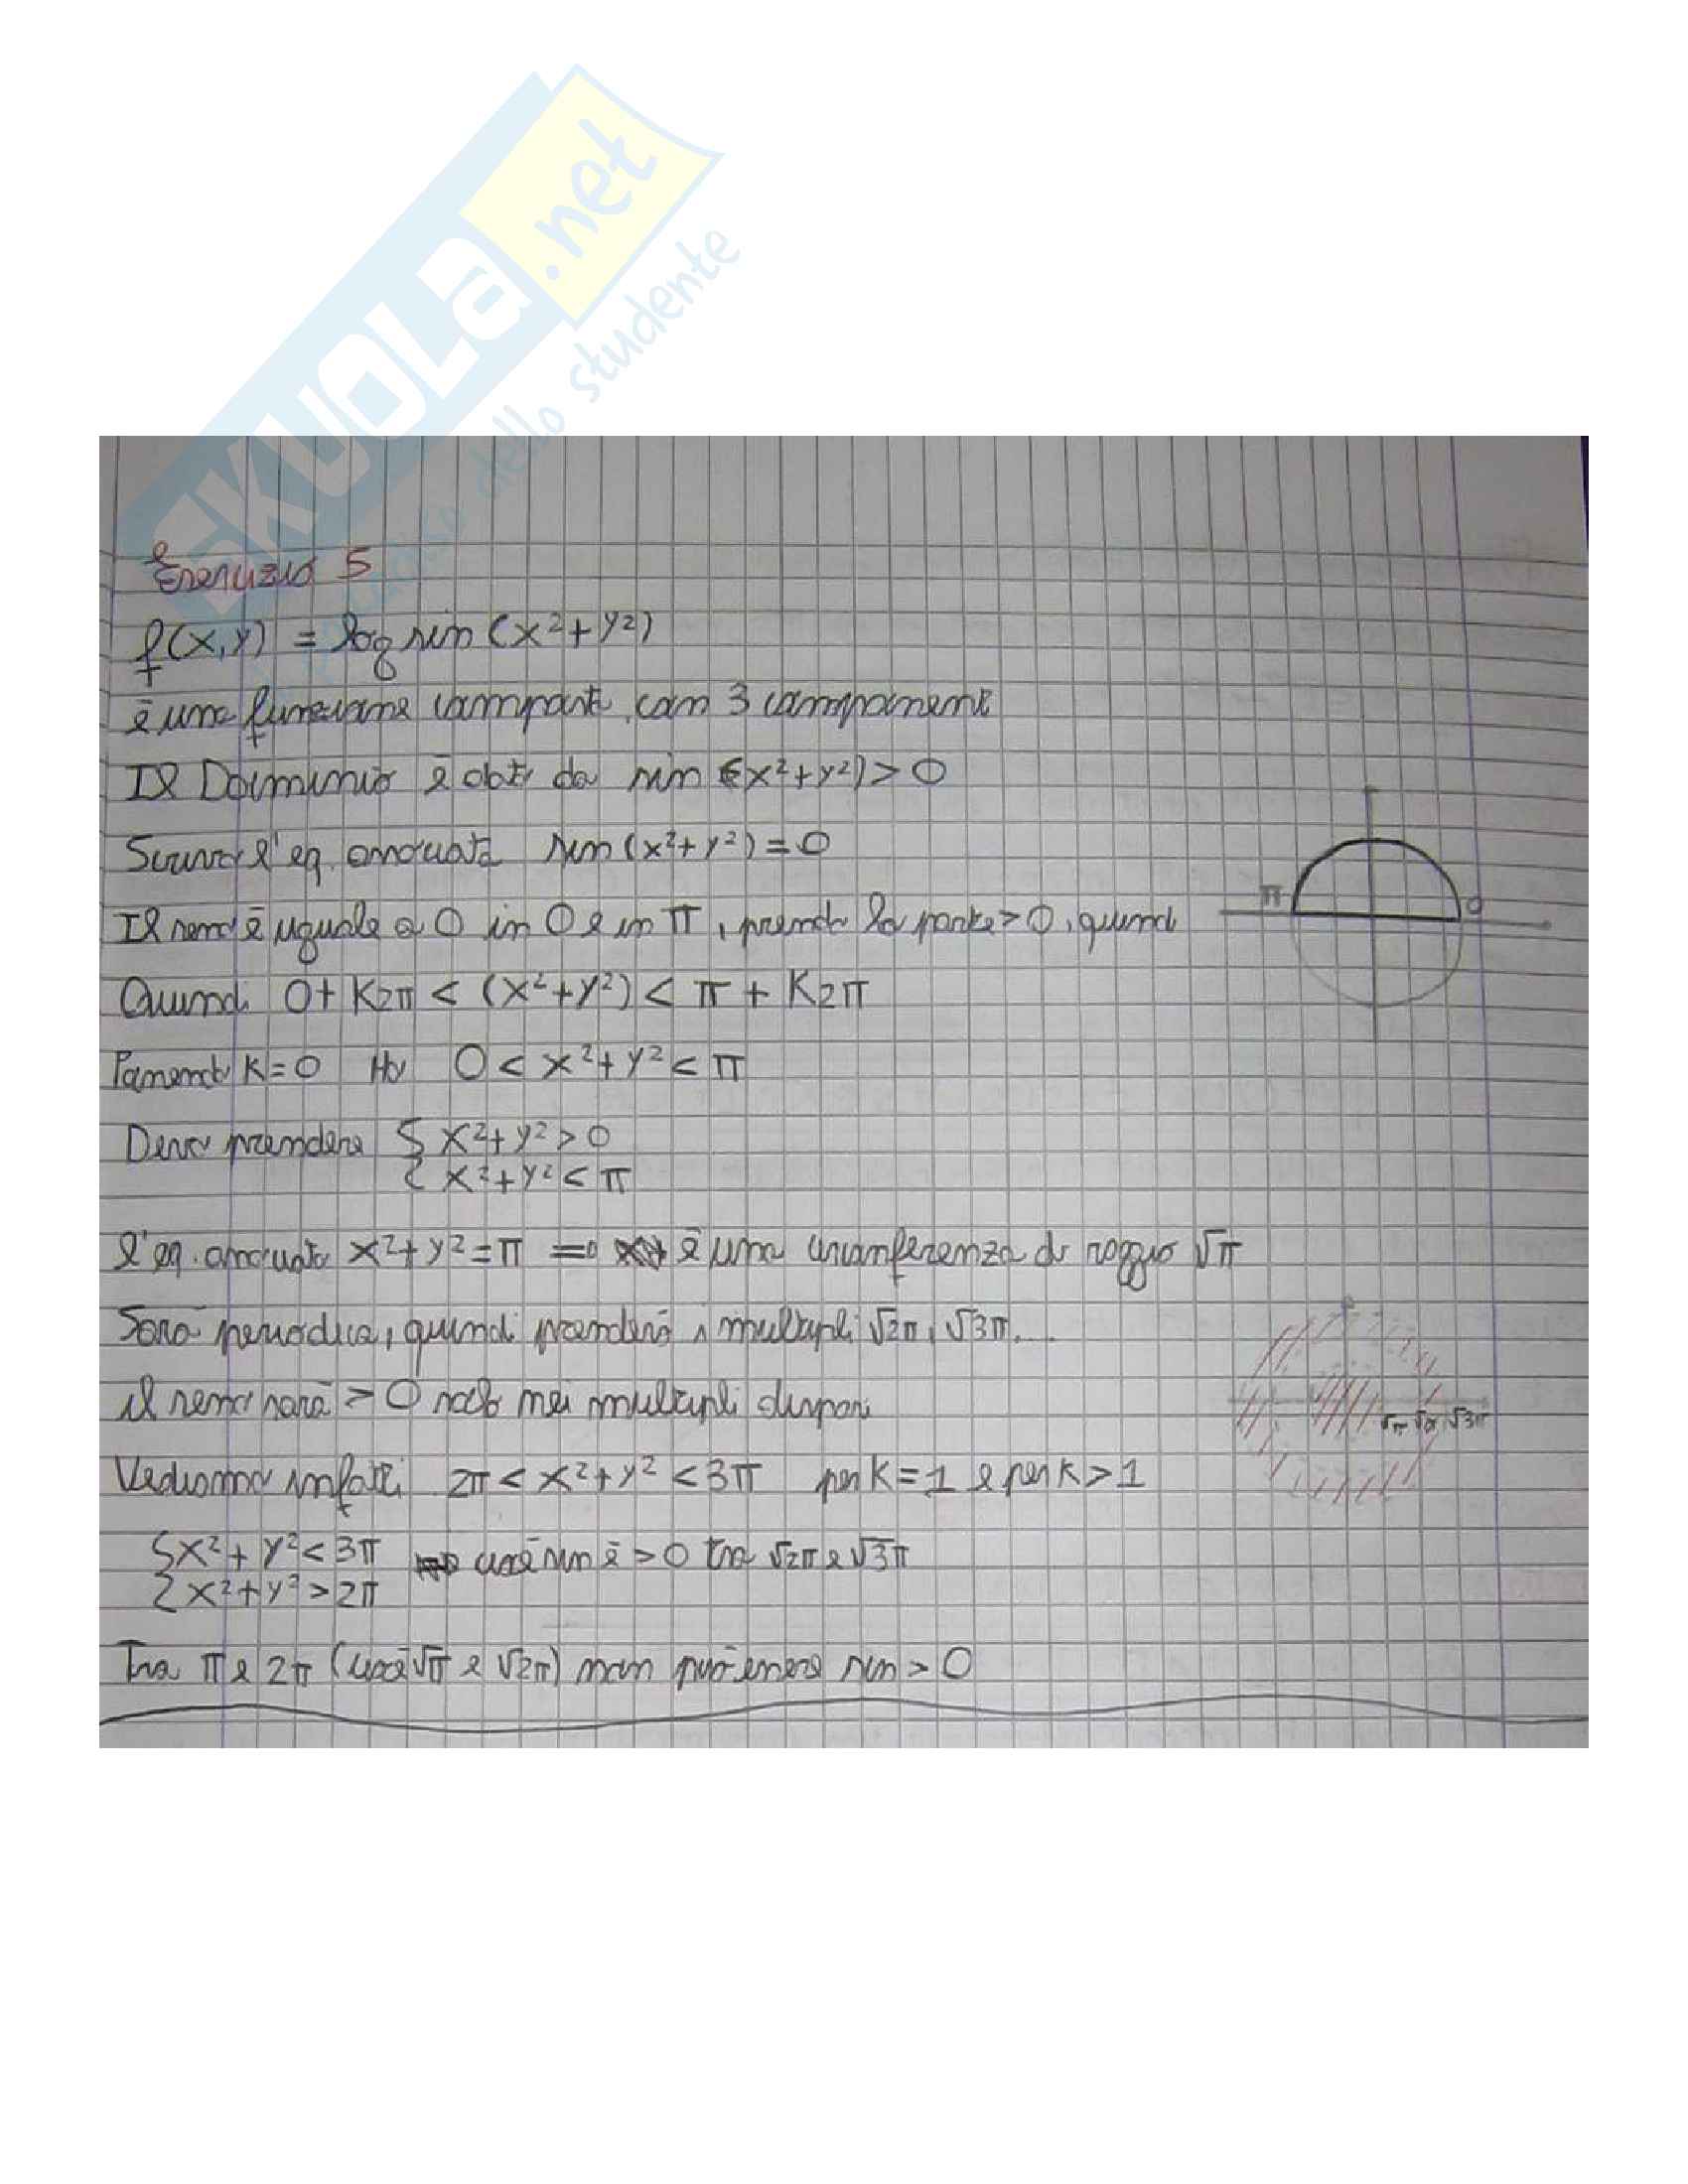 SKUOLa.net
dello studente
Esercizio 5
f(x,y) = log sin (x²+y²)
è una funzione composta con 3 componenti
Il Dominio è dato da sin (x²+y²) > 0
Scrivo l'eq. associata sin (x²+y²) = 0
π 0
Il seno è uguale a 0 in 0 e in π, prendo la parte > 0, quindi
Quindi 0 + K2π < (x²+y²) < π + K2π
Ponendo K=0 Ho 0 < x²+y² < π
Devo prendere { x²+y² > 0
{ x²+y² < π
L'eq. associata x²+y² = π => è una circonferenza di raggio √π
Sarà periodica, quindi prenderò i multipli √2π, √3π...
Il seno sarà > 0 solo nei multipli dispari
√π √2π √3π
Vediamo infatti 2π < x²+y² < 3π per K=1 e per K>1
{ x²+y² < 3π cioè sin è > 0 tra √2π e √3π
{ x²+y² > 2π
Tra π e 2π (cioè √π e √2π) non può essere sin > 0